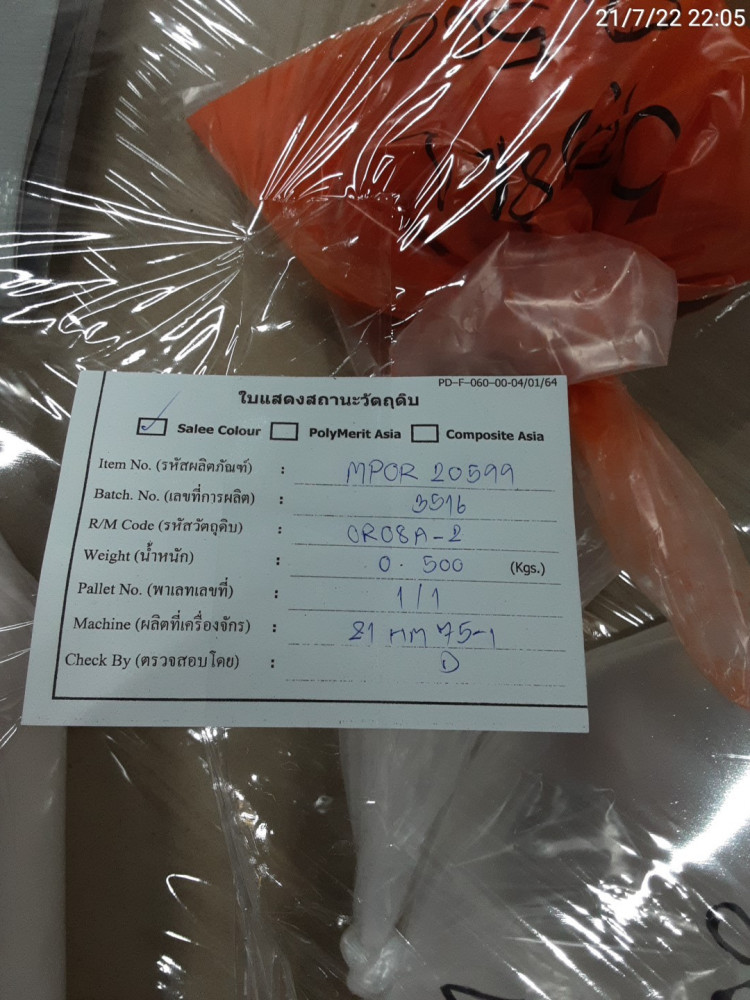 21/7/22 22:05
PD-F-060-00-04/01/64
ใบแสดงสถานะวัตถุดิบ
Salee Colour PolyMerit Asia Composite Asia
Item No. (รหัสผลิตภัณฑ์) : MPOR 20599
Batch. No. (เลขที่การผลิต) : 3516
R/M Code (รหัสวัตถุดิบ) : OR08A-2
Weight (น้ำหนัก) : 0.500 (Kgs.)
Pallet No. (พาเลทเลขที่) : 1/1
Machine (ผลิตที่เครื่องจักร) : 21 mm 75-1
Check By (ตรวจสอบโดย) : D